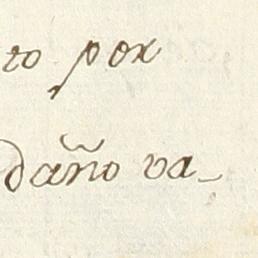 to por
daño va-